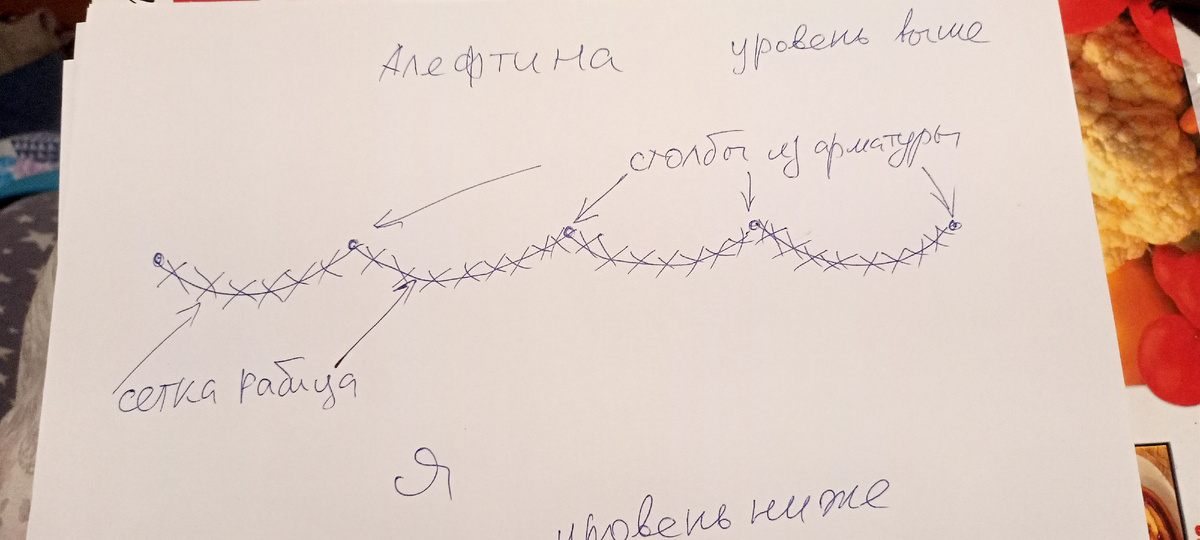 Алефтина
уровень выше
столбы из арматуры
сетка рабица
Я
уровень ниже